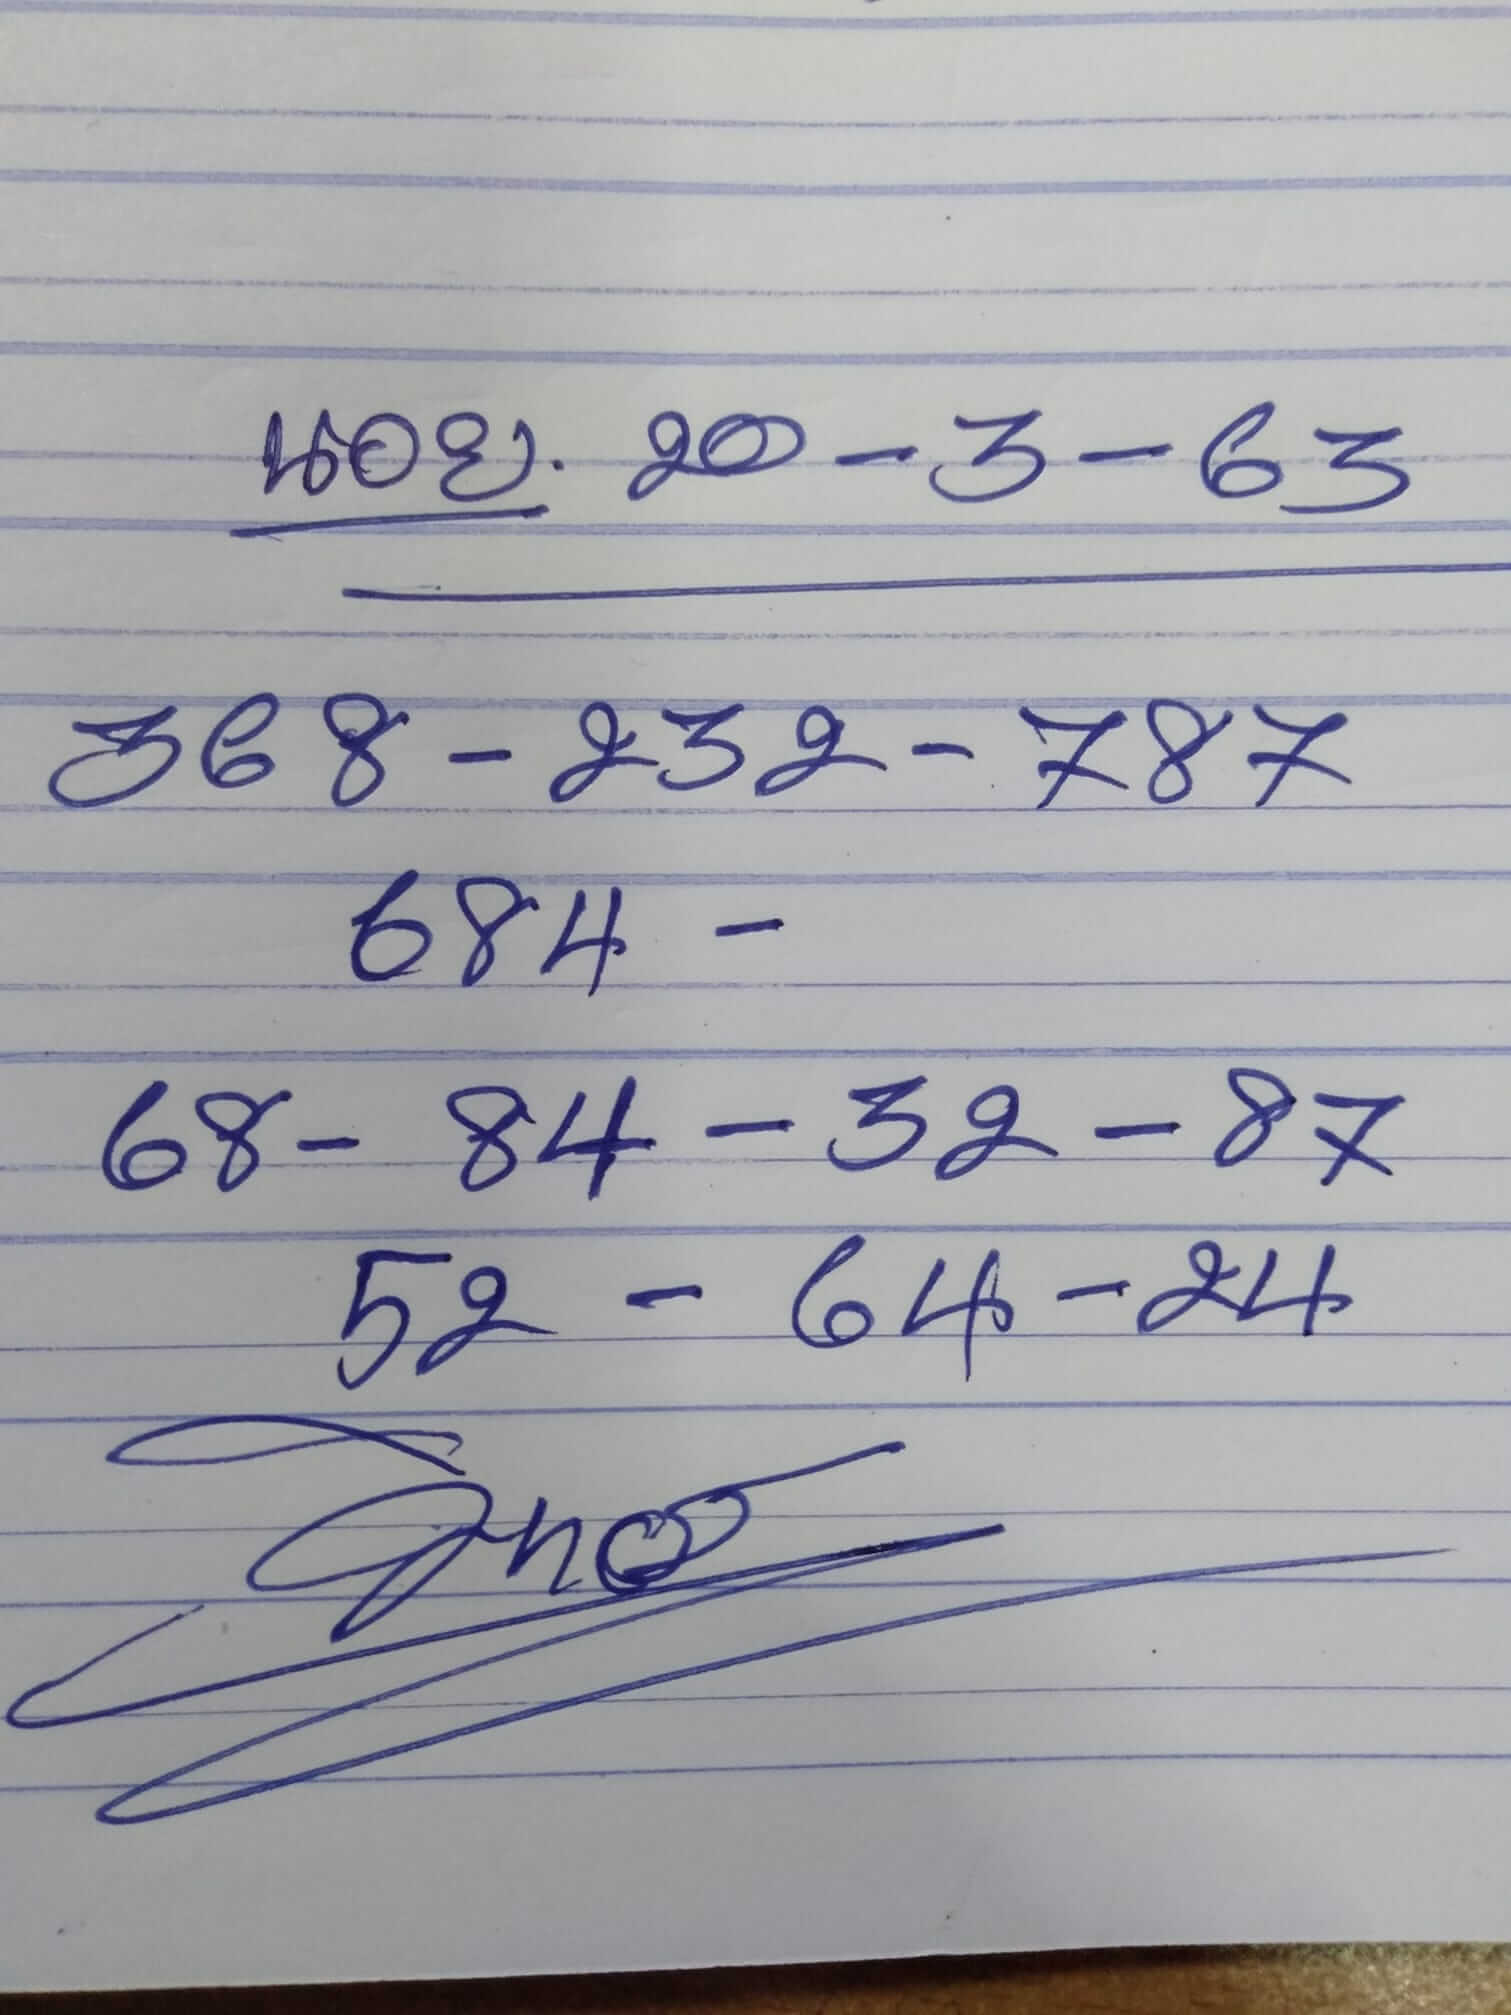 นอย. 20-3-63
368-232-787
684-
68-84-32-87
52-64-24